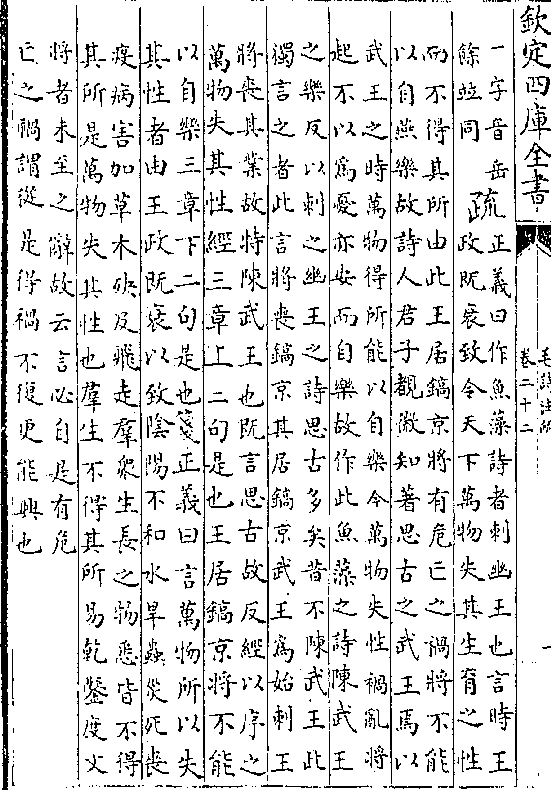 欽定四庫全書
毛詩注疏
卷二十二
一字音岳
餘並同
疏
正義曰作魚藻詩者刺幽王也言時王
政既衰致令天下萬物失其生育之性
而不得其所由此王居鎬京將有危亡之禍將不能
以自燕樂故詩人君子覩微知著思古之武王焉以
武王之時萬物得所能以自樂今萬物失性禍亂將
起不以為憂亦安而自樂故作此魚藻之詩陳武王
之樂反以刺之幽王之詩思古多矣皆不陳武王此
獨言之者此言將喪鎬京其居鎬京武王為始刺王
將喪其業故特陳武王也既言思古故反經以序之
萬物失其性經三章上二句是也王居鎬京將不能
以自樂三章下二句是也箋正義曰言萬物所以失
其性者由王政既衰以致陰陽不和水旱蟲災死喪
疫病害加草木殃及飛走羣衆生長之物悉皆不得
其所是萬物失其性也羣生不得其所易乾鑿度文
將者未至之辭故云言必自是有危
亡之禍謂從是得禍不復更能興也